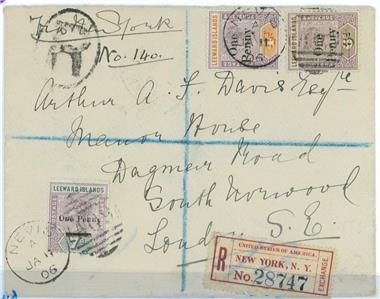 Via New York
R
No. 140.
LEEWARD ISLANDS
One
Penny
LEEWARD ISLANDS
One
Penny
Arthur A. F. Davis Esqre
Manor House
Dagmar Road
South Norwood
London S. E.
LEEWARD ISLANDS
One Penny
NEVIS
A
JA 11
06
UNITED STATES OF AMERICA.
R
NEW YORK, N. Y.
EXCHANGE.
No. 28747